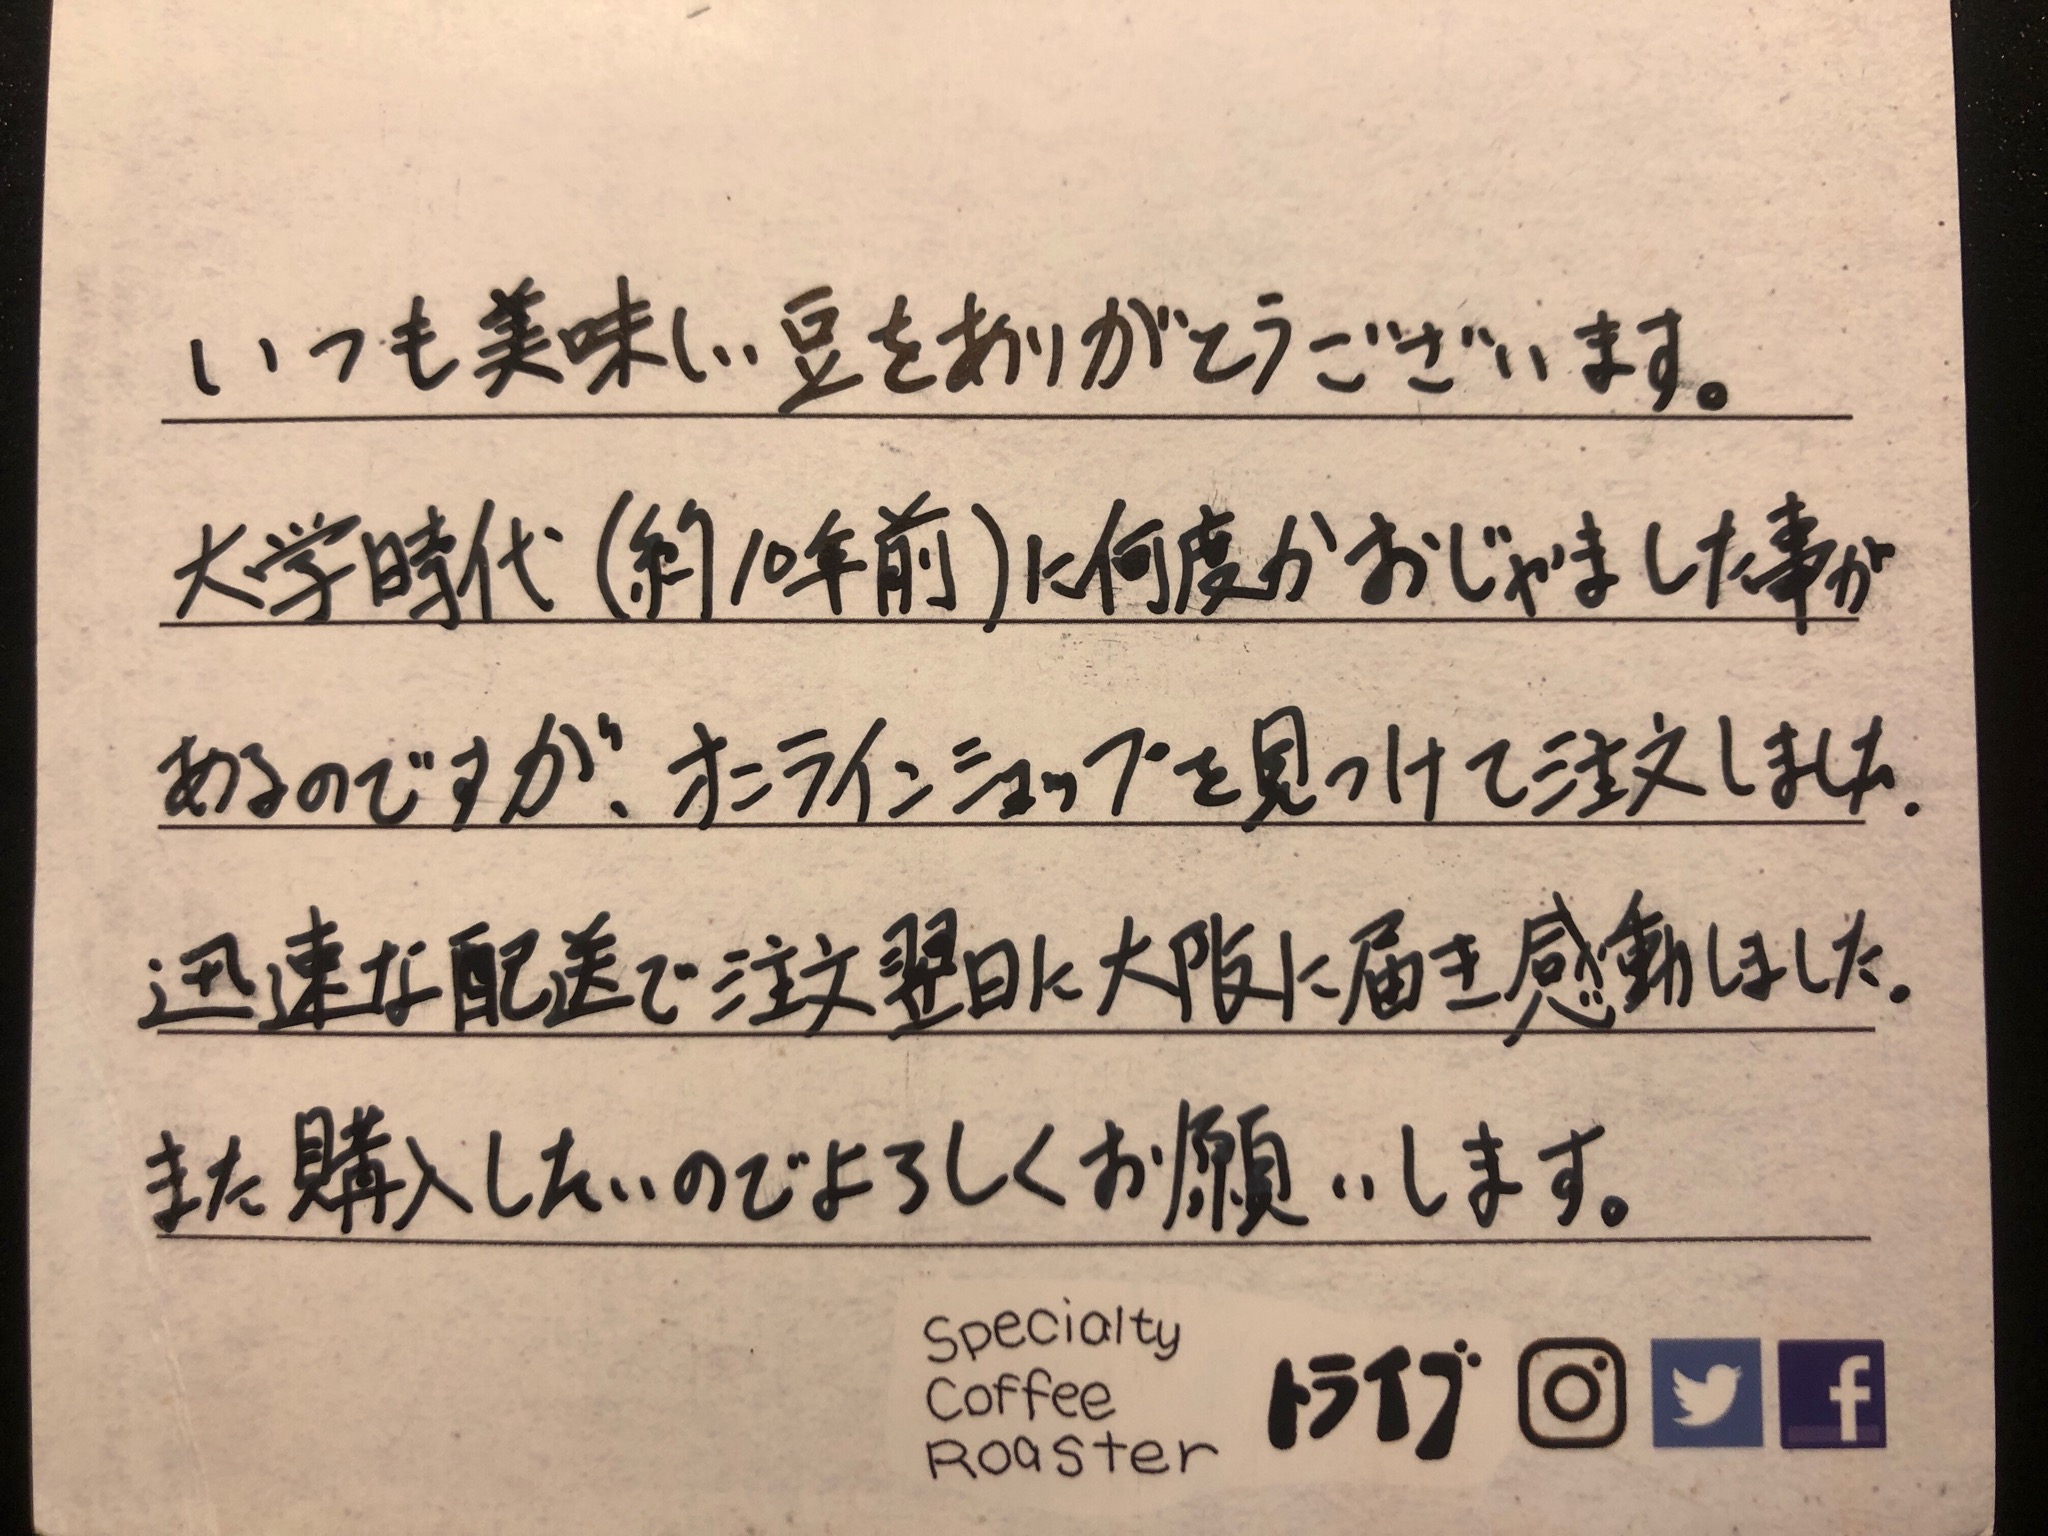 いつも美味しい豆をありがとうございます。
大学時代(約10年前)に何度かおじゃました事が
あるのですが、オンラインショップを見つけて注文しました.
迅速な配送で注文翌日に大阪に届き感動しました.
また購入したいのでよろしくお願いします。
Specialty
Coffee
Roaster
トライブ